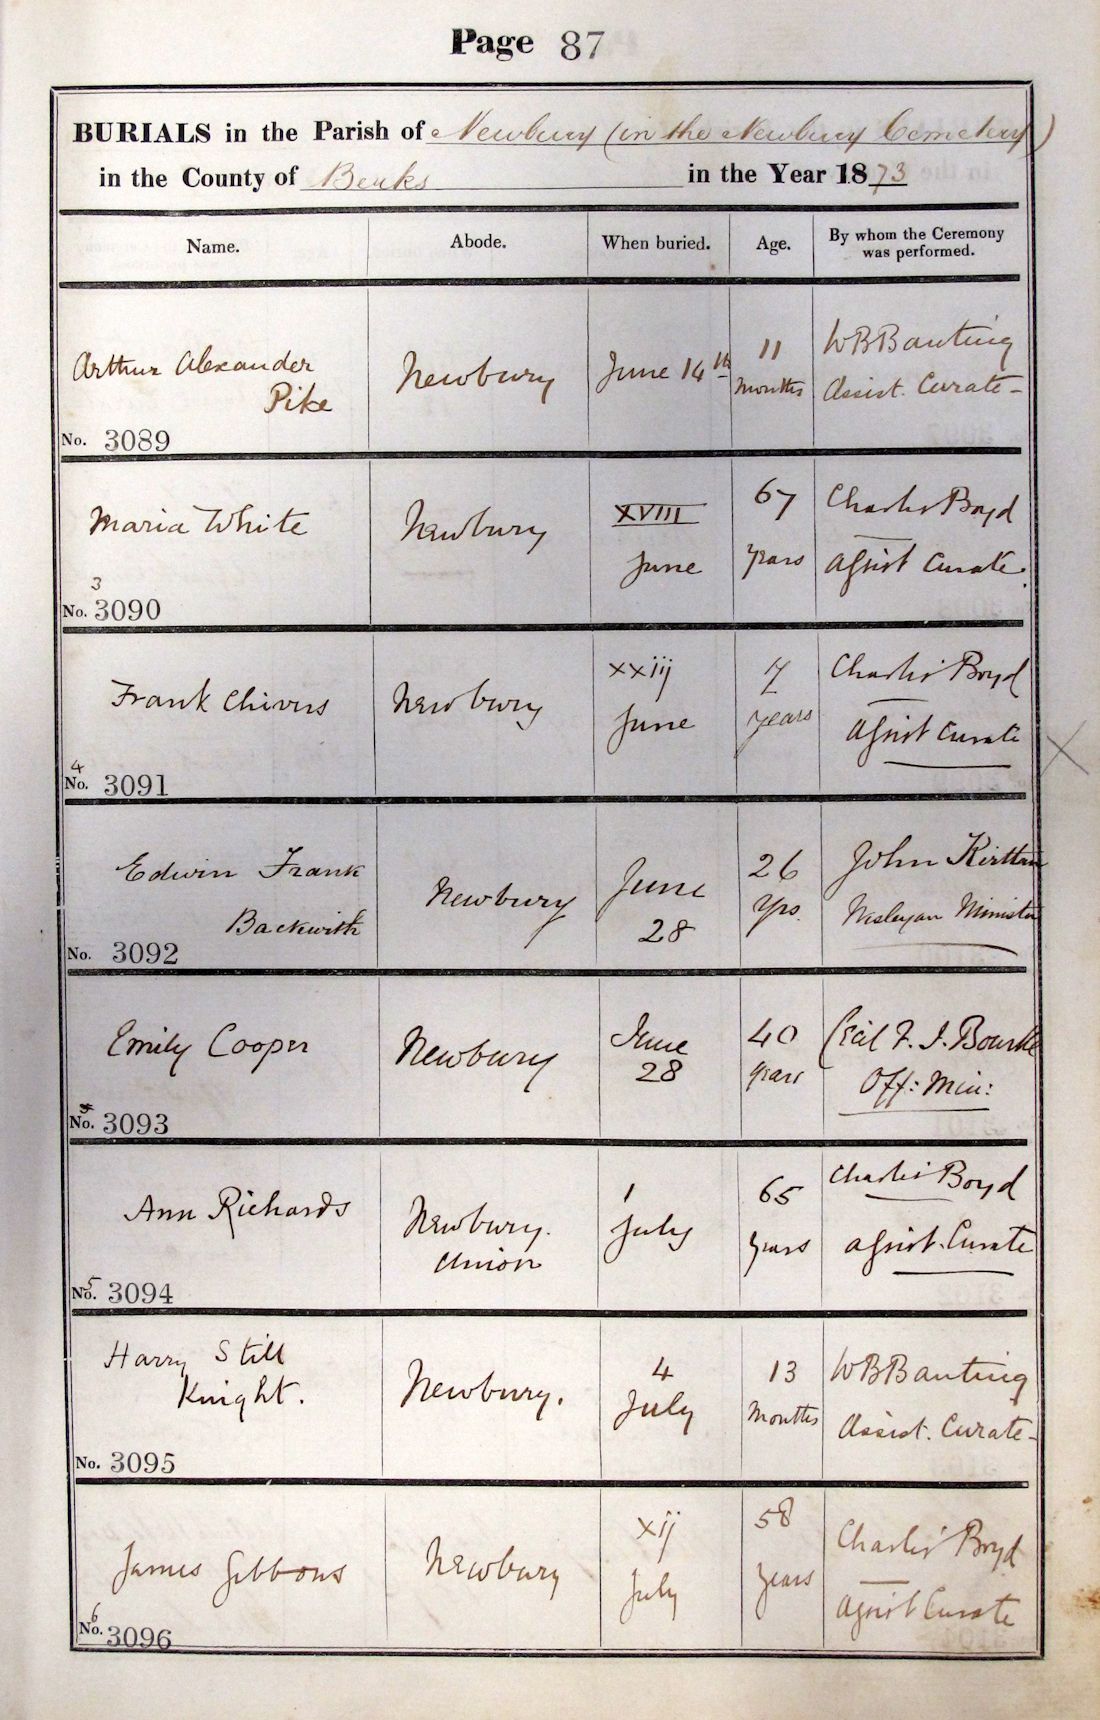 Page 87
BURIALS in the Parish of Newbury (in the Newbury Cemetery)
in the County of Berks in the Year 1873
Name. Abode. When buried. Age. By whom the Ceremony was performed.
Arthur Alexander
Pike
No. 3089
Newbury
June 14th
11
months
WBBanting
Assist. Curate-
Maria White
3
No. 3090
Newbury
XVIII
June
67
years
Charles Boyd
Assist Curate.
Frank Chivers
4
No. 3091
Newbury
xxiij
June
7
years
Charles Boyd
Assist Curate
X
Edwin Frank
Backwith
No. 3092
Newbury
June
28
26
yrs.
John
Wesleyan Minister
Emily Cooper
No. 3093
Newbury
June
28
40
years
Cecil F. J. Bourke
Off: Min:
Ann Richards
5
No. 3094
Newbury.
Union
1
July
65
years
Charles Boyd
Assist. Curate
Harry Still
Knight.
No. 3095
Newbury.
4
July
13
Months
WBBanting
Assist. Curate-
James Gibbons
6
No. 3096
Newbury
xij
July
58
years
Charles Boyd
Assist Curate